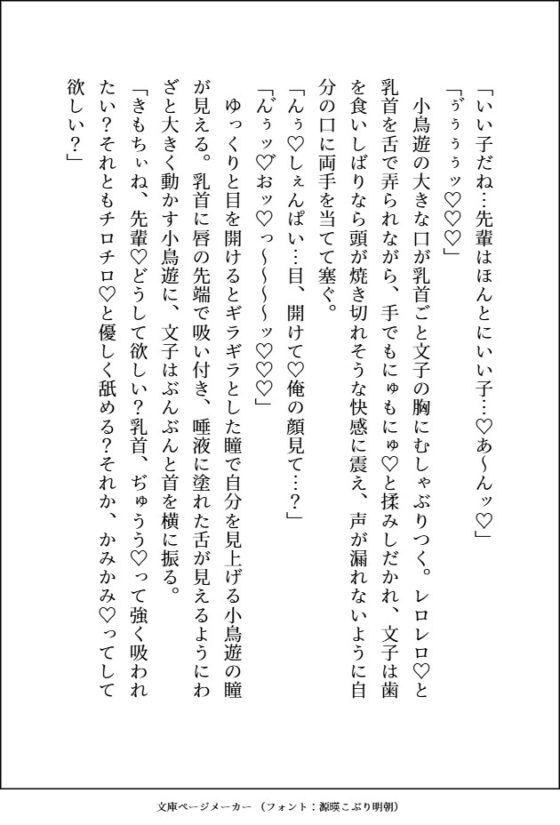 「いい子だね…先輩はほんとにいい子…♡あ〜んッ♡」
「ゔぅぅぅッ♡♡♡」
　小鳥遊の大きな口が乳首ごと文子の胸にむしゃぶりつく。レロレロ♡と
乳首を舌で弄られながら、手でもにゅもにゅ♡と揉みしだかれ、文子は歯
を食いしばりなら頭が焼き切れそうな快感に震え、声が漏れないように自
分の口に両手を当てて塞ぐ。
「んぅ♡しぇんぱい…目、開けて♡俺の顔見て…？」
「ん゛ぅッ♡゛おッ♡っ〜〜〜〜ッ♡♡♡」
　ゆっくりと目を開けるとギラギラとした瞳で自分を見上げる小鳥遊の瞳
が見える。乳首に唇の先端で吸い付き、唾液に塗れた舌が見えるようにわ
ざと大きく動かす小鳥遊に、文子はぶんぶんと首を横に振る。
「きもちぃね、先輩♡どうして欲しい？乳首、ぢゅうう♡って強く吸われ
たい？それともチロチロ♡と優しく舐める？それか、かみかみ♡ってして
欲しい？」
文庫ページメーカー（フォント：源暎こぶり明朝）